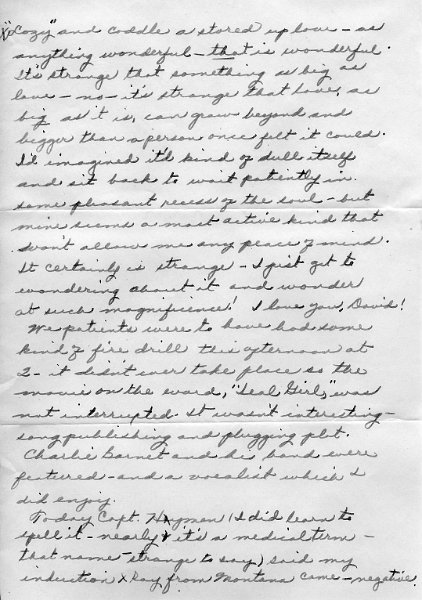 "Cozy" and coddle a stored up love - as
anything wonderful - that is wonderful.
It's strange that something as big as
love - no - it's strange that love, as
big as it is, can grow beyond and
bigger than a person once felt it could.
I'd imagined it'd kind of dull itself
and sit back to wait patiently in
some pleasant recess of the soul - but
mine seems a most active kind that
won't allow me any peace of mind.
It certainly is strange - I just get to
wondering about it and wonder
at such magnificence! I love you, David!
We patients were to have had some
kind of fire drill this afternoon at
2 - it didn't ever take place so the
movie on the ward, "Seal Girl," was
not interrupted. It wasn't interesting -
song publishing and plugging plot.
Charlie Barnet and his band were
featured - and a vocalist which I
did enjoy.
Today Capt. Hymen (I did learn to
spell it - nearly it's a medical term -
that name - strange to say) said my
induction X Ray from Montana came - negative